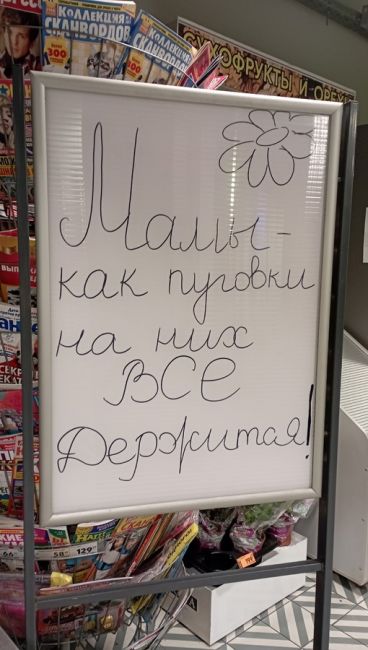 КОЛЛЕКЦИЯ
СКАНВОРДОВ
300
КОЛЛЕКЦИЯ
СКАНВОРДОВ
300
СУХОФРУКТЫ И ОРЕХИ
Мамы -
как пуговки
на них
ВСЕ
Держится!
58
129